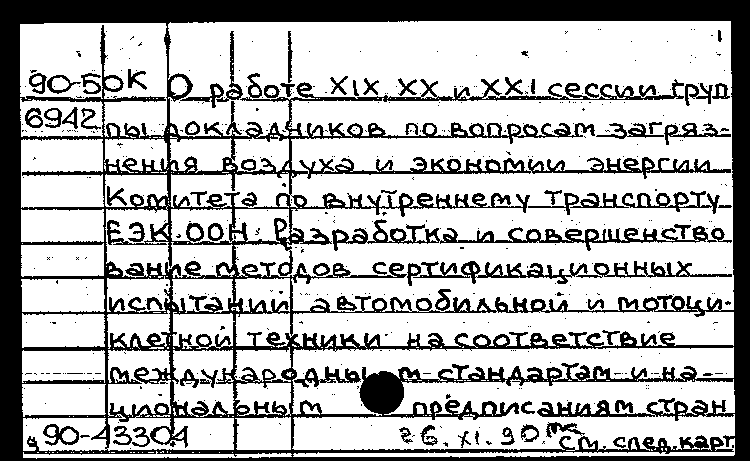 1
90-50К О работе XIX, XX и XXI сессии груп
6942 пы докладчиков по вопросам загряз-
нения воздуха и экономии энергии
Комитета по внутреннему транспорту
ЕЭК ООН. Разработка и совершенство
вание методов сертификационных
испытании автомобильной и мотоци-
клетной техники на соответствие
международным стандартам и на-
циональным предписаниям стран
90-43304 26.XI.90 см. след. карт